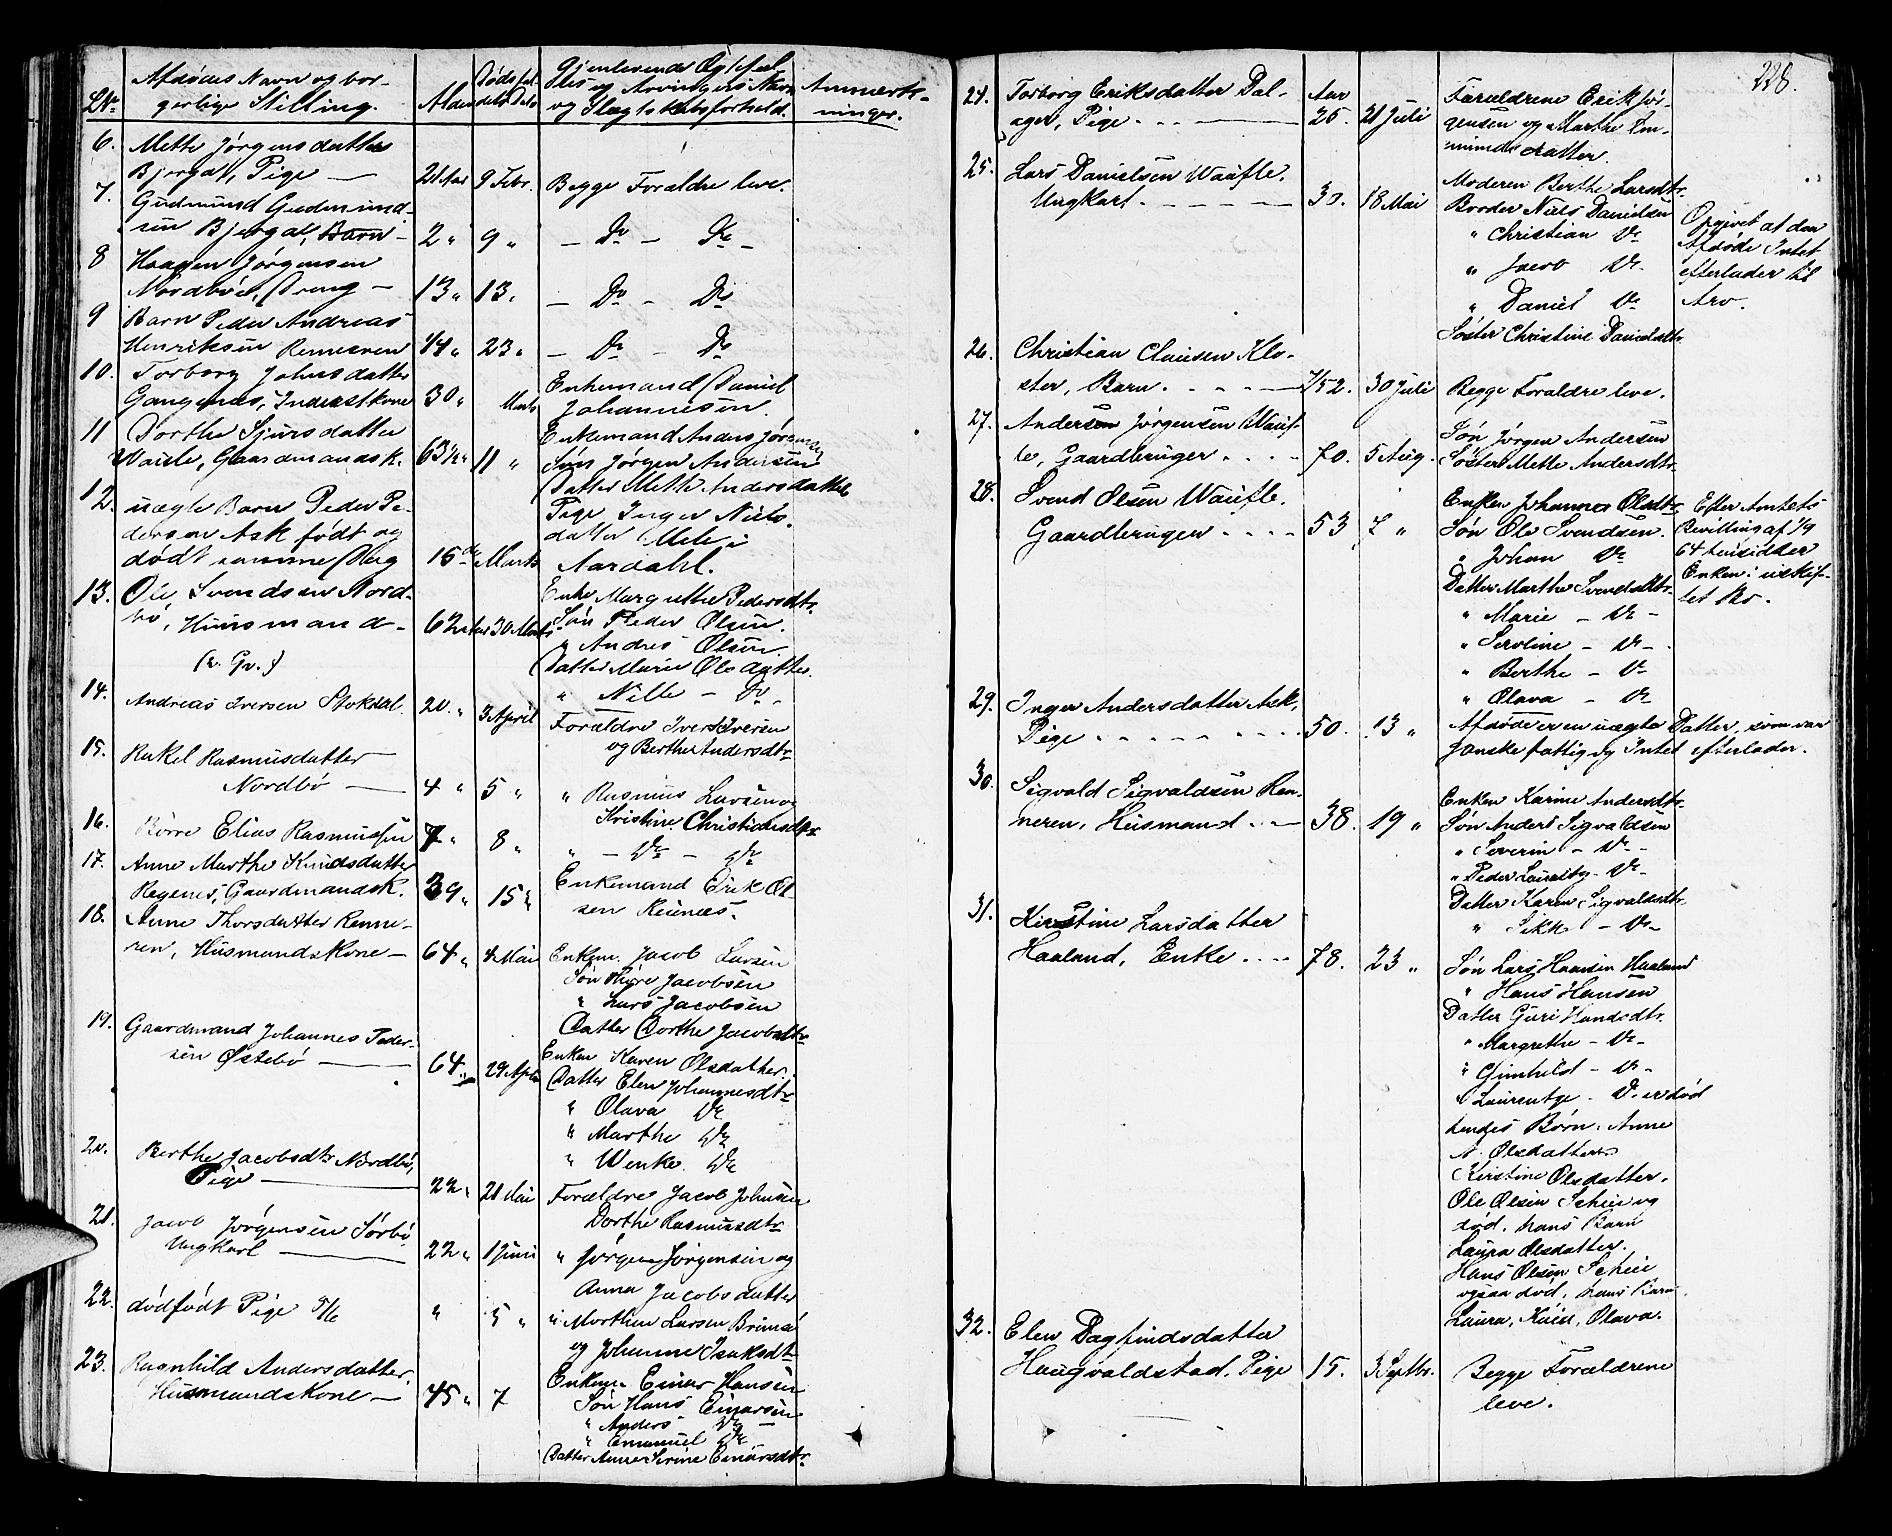 LNo Afdødes Navn og bor-
gerlige Stilling. Alder Dødsfal
dets Dato Gjenlevende Ægtefæl
les og Arvingers Navn
og Slægtskabsforhold. Anmærk-
ninger.
6. Mette Jørgensdatter
Bjergal, Pige — 21 Aar 9 Febr. Begge Forældre leve.
7. Gudmund Gudmund-
sen Bjergal, Barn — 2 " 9 " — Do — Do —
8 Haagen Jørgensen
Nordbøe, Dreng — 13 " 13 " — Do — Do
9 Barn Peder Andreas
Henriksen Renneren 1/4 " 23 " — Do — Do
10. Torborg Johnsdatter
Gangenes, Inderstkone 30 " Marts Enkemand Daniel
Johannesen.
11 Dorthe Sjursdatter
Vaule, Gaardmandsk. 63 1/2 " 11 " Enkemand Anders Jørgensen
Søn Jørgen Andersen
Datter Mette Andersdatter
12. uægte Barn Peder Pe-
dersen Ask født og
dødt samme Dag 15de Marts Pige Inger Niels-
datter Mele i
Aardahl.
13. Ole Svendsen Nord-
bø, Huusmand — 62 Aar 30 Marts Enke Margrethe Pedersdtr.
(v. Gv.) Søn Peder Olsen.
" Andres Olsen.
Datter Marie Olsdatter
" Nille — Do
14. Andreas Iversen Stokdal. 20. " 3 April Forældre Iver Iversen
og Berthe Andersdtr
15. Rakel Rasmusdatter
Nordbø — 4 " 5 " " Rasmus Larsen og
Kristine Christiansdtr
16. Børre Elias Rasmussen 7 " 8 " " — Do — Do
17. Anne Marthe Knudsdatter
Regenes, Gaardmandsk. 39 " 15 " Enkemand Erik Ol-
sen Reines.
18. Anne Thorsdatter Renne-
ren, Husmandskone — 64 " 4 Mai Enkem. Jacob Larsen
Søn Thore Jacobsen
" Lars Jacobsen
Datter Dorthe Jacobsdtr
19. Gaardmand Johannes Peder-
sen Østebø — 64 " 29 April Enken Karen Olsdatter.
Datter Elen Johannesdtr
" Olava Do
" Marthe Do
" Wenke. Do
20. Berthe Jacobsdtr Nordbø,
Pige — 22 " 21 Mai Forældre Jacob Johnsen
Dorthe Rasmusdtr
21. Jacob Jørgensen Sørbø
Ungkarl — 22 " 1 Juni " Jørgen Jørgensen og
Anna Jacobsdatter
22. dødfødt Pige 5/6 " 5 " " Morthen Larsen Brimsø
og Johanne Isaksdtr
23. Ragnhild Andersdatter
Husmandskone — 45 " 7 Enkem. Einar Hansen
Søn Hans Einarsen
" Anders Do
" Emanuel Do
Datter Anne Serine Einarsdtr
228.
24. Torborg Eriksdatter Dal-
ager, Pige . . — Aar
25. 21 Juli Forældrene Erik Jør-
gensen og Marthe Om-
mundsdatter.
25. Lars Danielsen Waufle.
Ungkarl . . . — 30. 18 Mai Moderen Berthe Larsdtr.
Broder Niels Danielsen
" Christian Do
" Jacob Do.
" Daniel Do
Søster Christine Danielsdtr. Opgivet at den
Afdøde Intet
efterlader til
Arv.
26. Christian Clausen Klo-
ster, Barn . . . — 1/52. 30 Juli Begge Forældre leve.
27. Andersen Jørgensen Wauf-
le, Gaardbruger . . . . 70. 5 Aug. Søn Jørgen Andersen
Søster Mette Andersdtr.
28. Svend Olsen Waufle.
Gaardbruger . . . . 53 7 " Enken Johanne Olsdtr.
Søn Ole Svendsen.
" Johan Do
Datter Marthe Svendsdtr.
" Marie — Do —
" Seroline — Do — .
" Berthe — Do
" Olava — Do Efter Amtets
Bevilling af 1/9
64 hensidder
Enken i uskif-
tet Bo.
29. Inger Andersdatter Ask,
Pige . . . . . . . . 50. 13 " Afdøde er en uægte Datter, som var
ganske fattig og Intet efterlader.
30. Sigvald Sigvaldsen Ren-
neren, Husmand . . — 38. 19 " Enken Karine Andersdtr.
Søn Anders Sigvaldsen
" Severin — Do —
" Peder Lauritz — Do —
Datter Karen Sigvaldsdtr.
" Sikk — Do —
31. Kirstine Larsdatter
Haaland, Enke . . . . 78. 23 " Søn Lars Hansen Haaland
" Hans Hansen
Datter Guri Hansdtr.
" Margrethe — Do —
" Gunhild — Do —
" Laurentze . Do er død
hendes Børn. Anne
A. Olsdatter
Kirstine Olsdatter.
Ole Olsen Scheie og
død. hans Barn
Laura Olsdatter.
Hans Olsen Scheie
ogsaa død, hans Børn
Laura, Karen, Olava.
32. Elen Dagfindsdatter
Haugvaldstad. Pige 15. 3 Septbr. Begge Forældrene
leve.